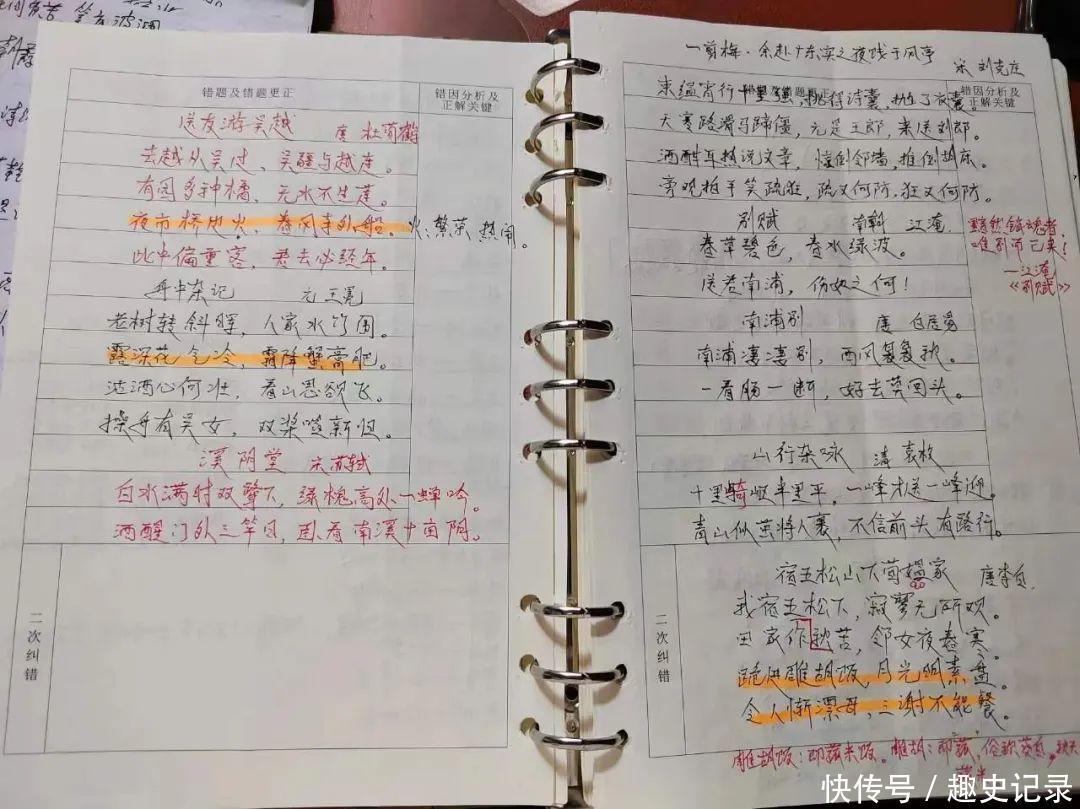 错题及错题更正
错因分析及
正解关键
送友游吴越 唐 杜荀鹤
去越从吴过、吴疆与越连。
有园多种橘、无水不生莲。
夜市桥边火、春风寺外船。 火:繁荣、热闹。
此中偏重客、君去必经年。
舟中杂记 元 王冕
老树转斜晖,人家水竹围。
露深花气冷,霜降蟹膏肥。
沽酒心何壮,看山思欲飞。
操舟有吴女,双桨唱新归。
溪阴堂 宋 苏轼
白水满时双鹭下,绿槐高处一蝉吟。
酒醒门外三竿日,卧看南溪十亩阴。
二次纠错
一剪梅·余赴广东实之夜饯于风亭
宋 刘克庄
错因分析及
正解关键
束缊宵行十里强,挑得诗囊,抛了衣囊。
天寒路滑马蹄僵,元是王郎,来送刘郎。
酒酣耳热说文章,惊倒邻墙,推倒胡床。
旁观拍手笑疏狂,疏又何妨,狂又何妨。
别赋 南朝 江淹
春草碧色,春水绿波。
送君南浦,伤如之何!
黯然销魂者
唯别而已矣!
—江淹
《别赋》
南浦别 唐 白居易
南浦凄凄别,西风袅袅秋。
一看肠一断,好去莫回头。
山行杂咏 清 袁枚
十里崎岖半里平,一峰才送一峰迎。
青山似茧将人裹,不信前头有路行。
宿五松山下荀媪家 唐 李白
我宿五松下,寂寥无所欢。
田家作秋苦,邻女夜舂寒。
跪进雕胡饭,月光明素盘。
令人惭漂母,三谢不能餐。
雕胡饭:即菰米饭。雕胡:即菰,俗称茭白,秋天
二次纠错
快传号/趣史记录